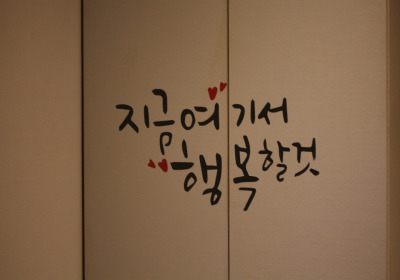 지금 여기서
행복할것